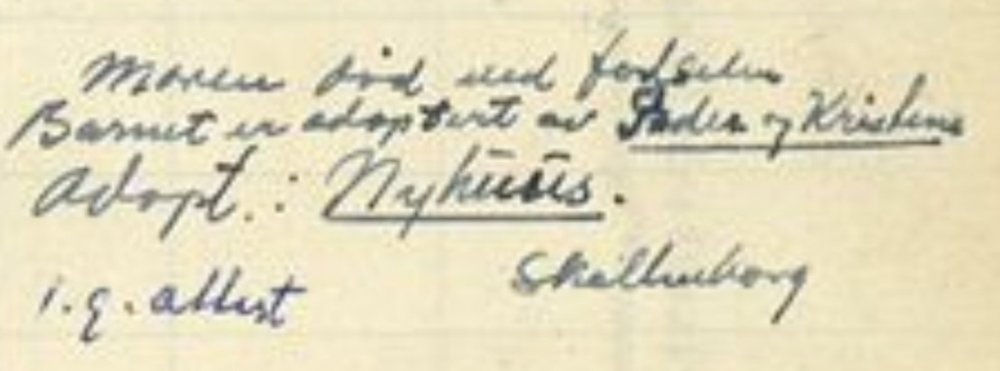 Moren død ved fødselen
Barnet er adoptert av Peder og Kristine
Adopt.: Nyhuus.
Skallenborg
1. g. attest